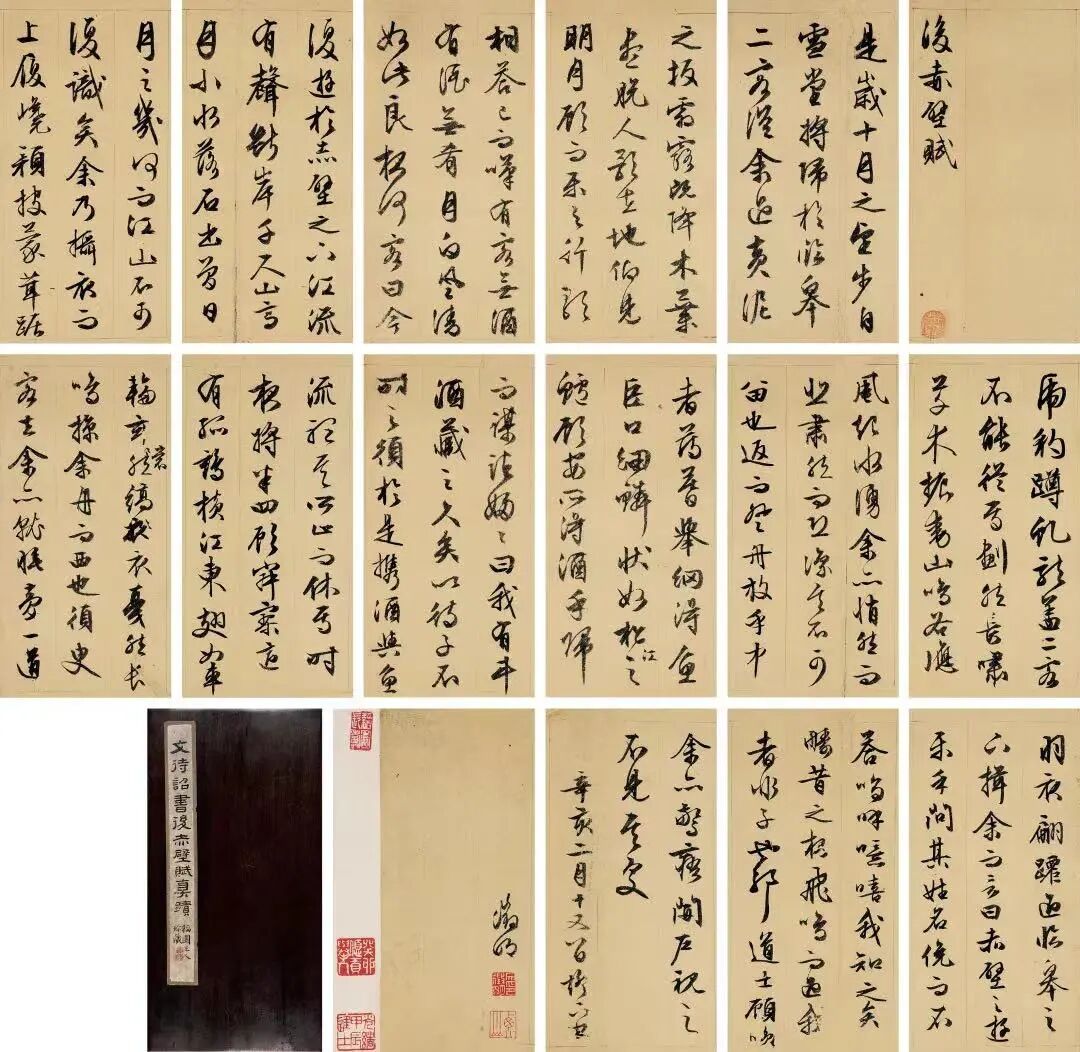 後赤壁賦
是歲十月之望步自
雪堂將歸於臨皋
二客從余過黃泥
之坂霜露既降木葉
盡脫人影在地仰見
明月顧而樂之行歌
相答已而嘆有客無酒
有酒無肴月白風清
如此良夜何客曰今
復遊於赤壁之下江流
有聲斷岸千尺山高
月小水落石出曾日
月之幾何而江山不可
復識矣余乃攝衣而
上履巉巖披蒙茸踞
虎豹蹲虬龍蓋二客
不能從焉劃然長嘯
草木振動山鳴谷應
風起水湧余亦悄然而
悲肅然而恐凜乎不可
留也返而登舟放乎中
者薄暮舉網得魚
巨口細鱗狀如松江之
鱸顧安所得酒乎歸
而謀諸婦婦曰我有斗
酒藏之久矣以待子不
時之須於是攜酒與魚
流聽其所止而休焉時
夜將半四顧寂寥適
有孤鶴橫江東翅如車
輪玄裳縞衣戛然長
鳴掠余舟而西也須臾
客去余亦就睡夢一道
羽衣翩躚過臨皋之
下揖余而言曰赤壁之遊
樂乎問其姓名俛而不
答嗚呼噫嘻我知之矣
疇昔之夜飛鳴而過我
者非子也耶道士顧笑
余亦驚寤開戶視之
不見其處
辛亥二月十又
徵明
文待詔書後赤壁賦真蹟